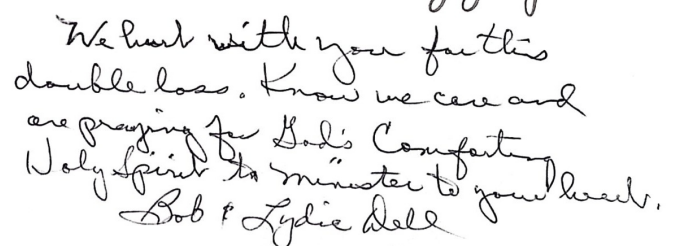 We hurt with you for this
double loss. Know we care and
are praying for God's Comforting
Holy Spirit to minister to your heart.
Bob & Lydie Dell